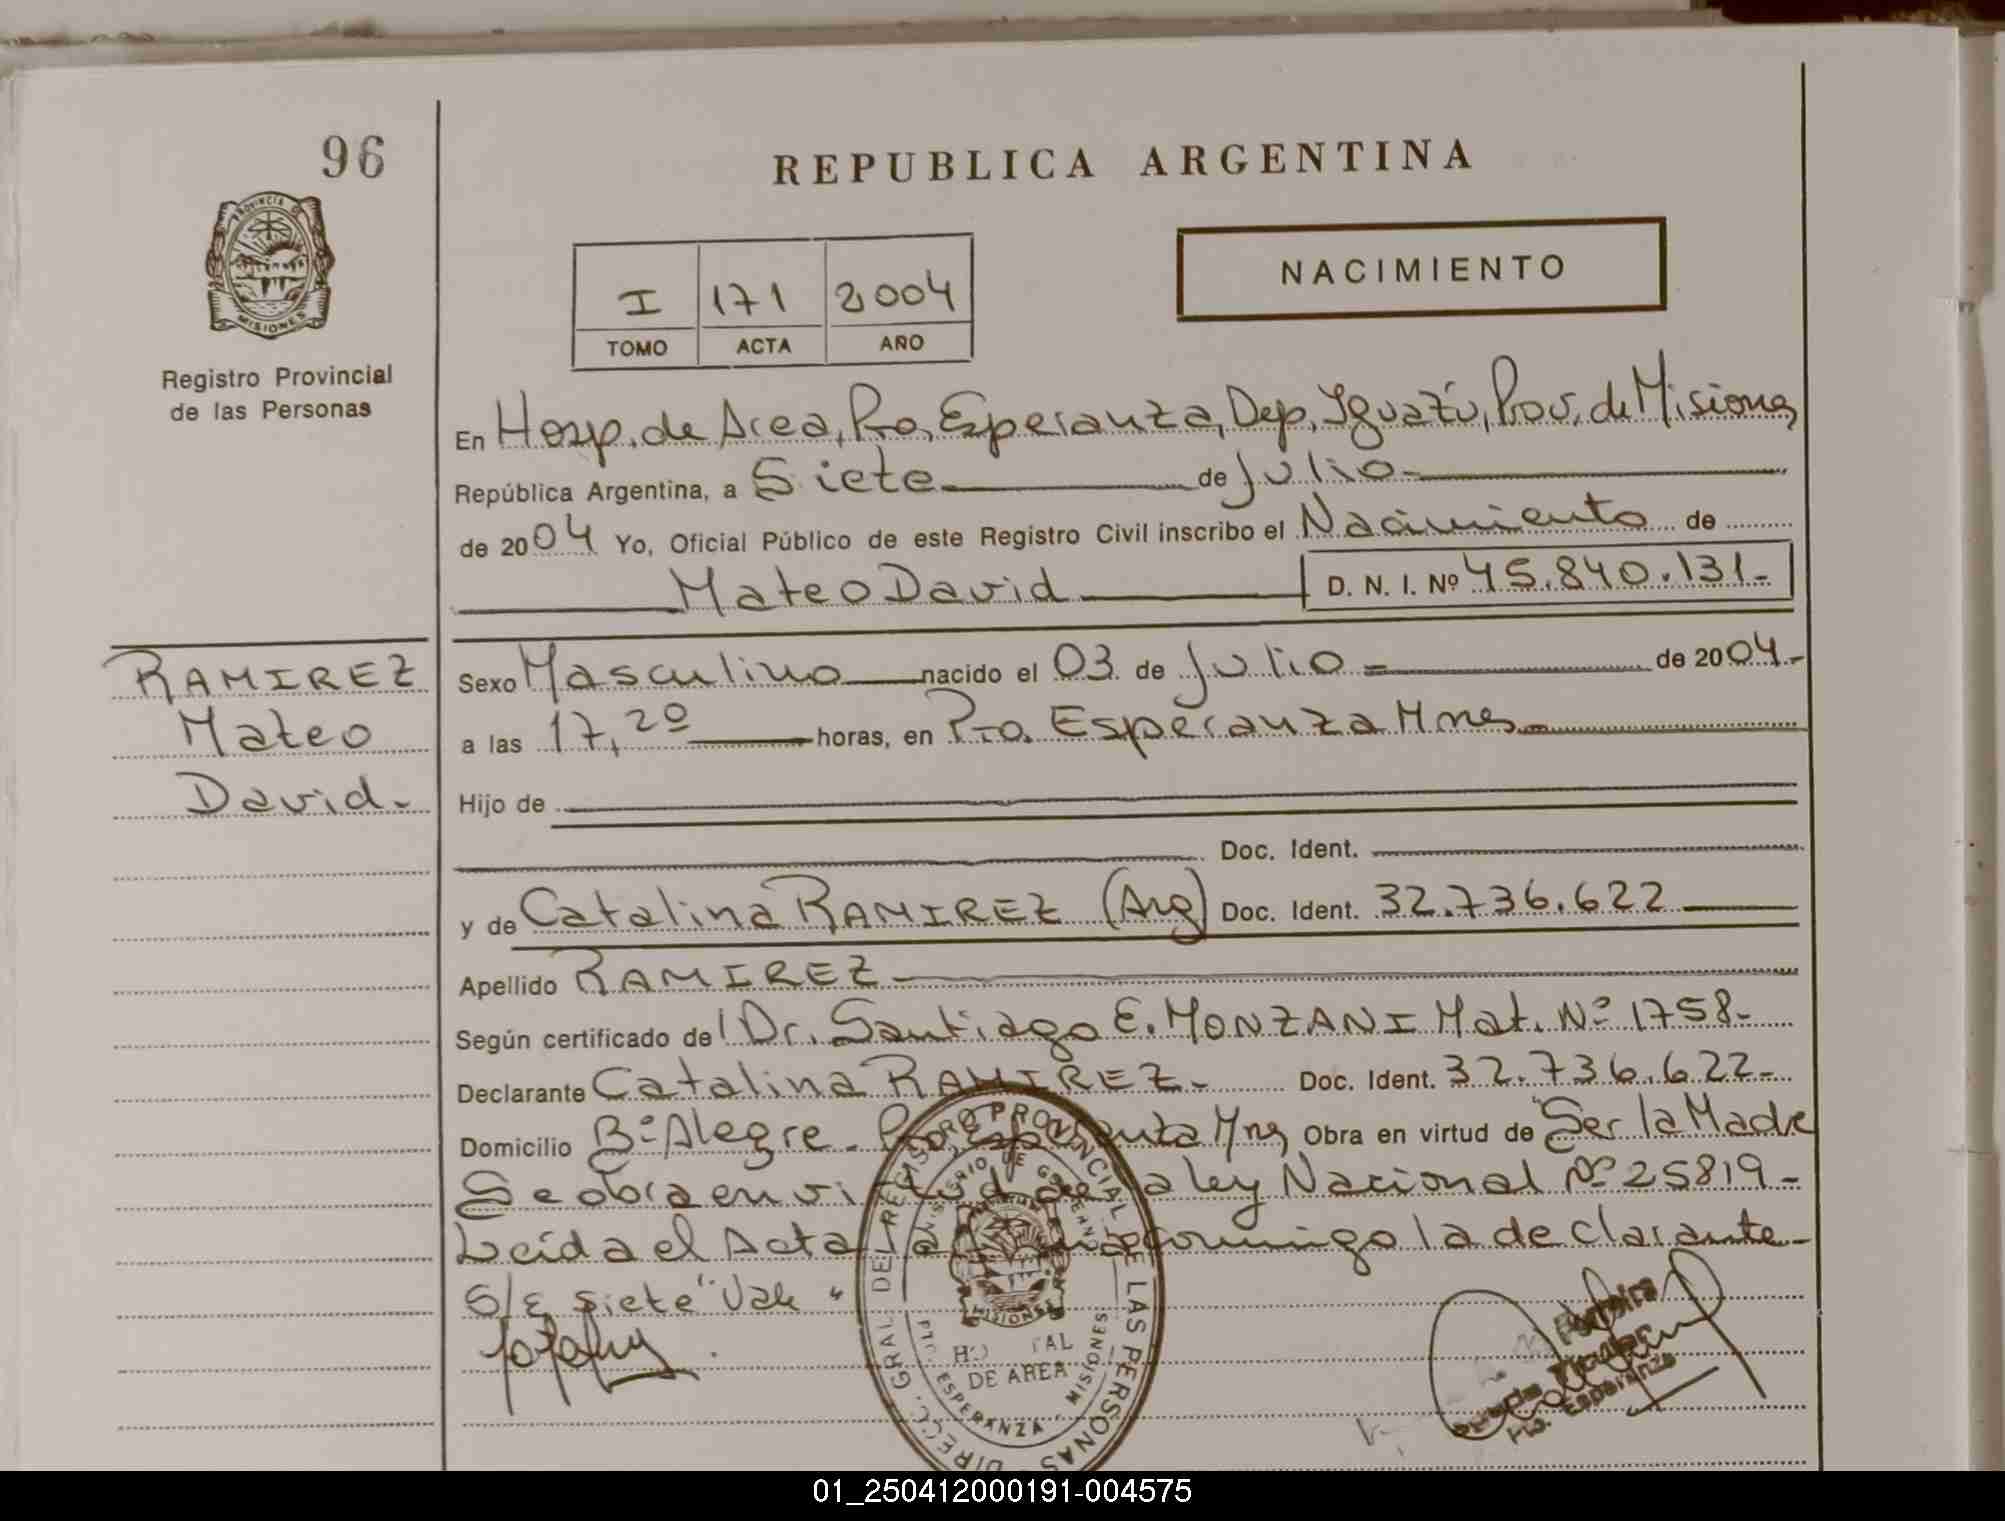 96
REPUBLICA ARGENTINA
PROVINCIA D
MISIONES
Registro Provincial
de las Personas
I 171 2004
TOMO ACTA AÑO
NACIMIENTO
En Hosp. de Area, Pto. Esperanza, Dep. Iguazú, Prov. de Misiones
República Argentina, a Siete de Julio
de 2004 Yo, Oficial Público de este Registro Civil inscribo el Nacimiento de
Mateo David D. N. I. Nº 45.840.131-
RAMIREZ
Mateo
David.-
Sexo Masculino nacido el 03 de Julio = de 2004.-
a las 17,20 horas, en Pto. Esperanza Mnes.
Hijo de
Doc. Ident.
y de Catalina RAMIREZ (Arg) Doc. Ident. 32.736.622
Apellido RAMIREZ
Según certificado de l Dr. Santiago E. MONZANI Mat. Nº 1758-
Declarante Catalina RAMIREZ.- Doc. Ident. 32.736.622-
Domicilio Bº Alegre - Pto. Esperanza Mnes Obra en virtud de Ser la Madre
Se obra en virtud de la ley Nacional Nº 25819-
Leída el Acta conmigo la declarante-
S/E siete "Vale"
DIRECC. GRAL. DEL REGISTRO PROVINCIAL DE LAS PERSONAS
MINISTERIO DE GOBIERNO
MISIONES
DE AREA
PTO. ESPERANZA - MISIONES
Pto. Esperanza
01_250412000191-004575